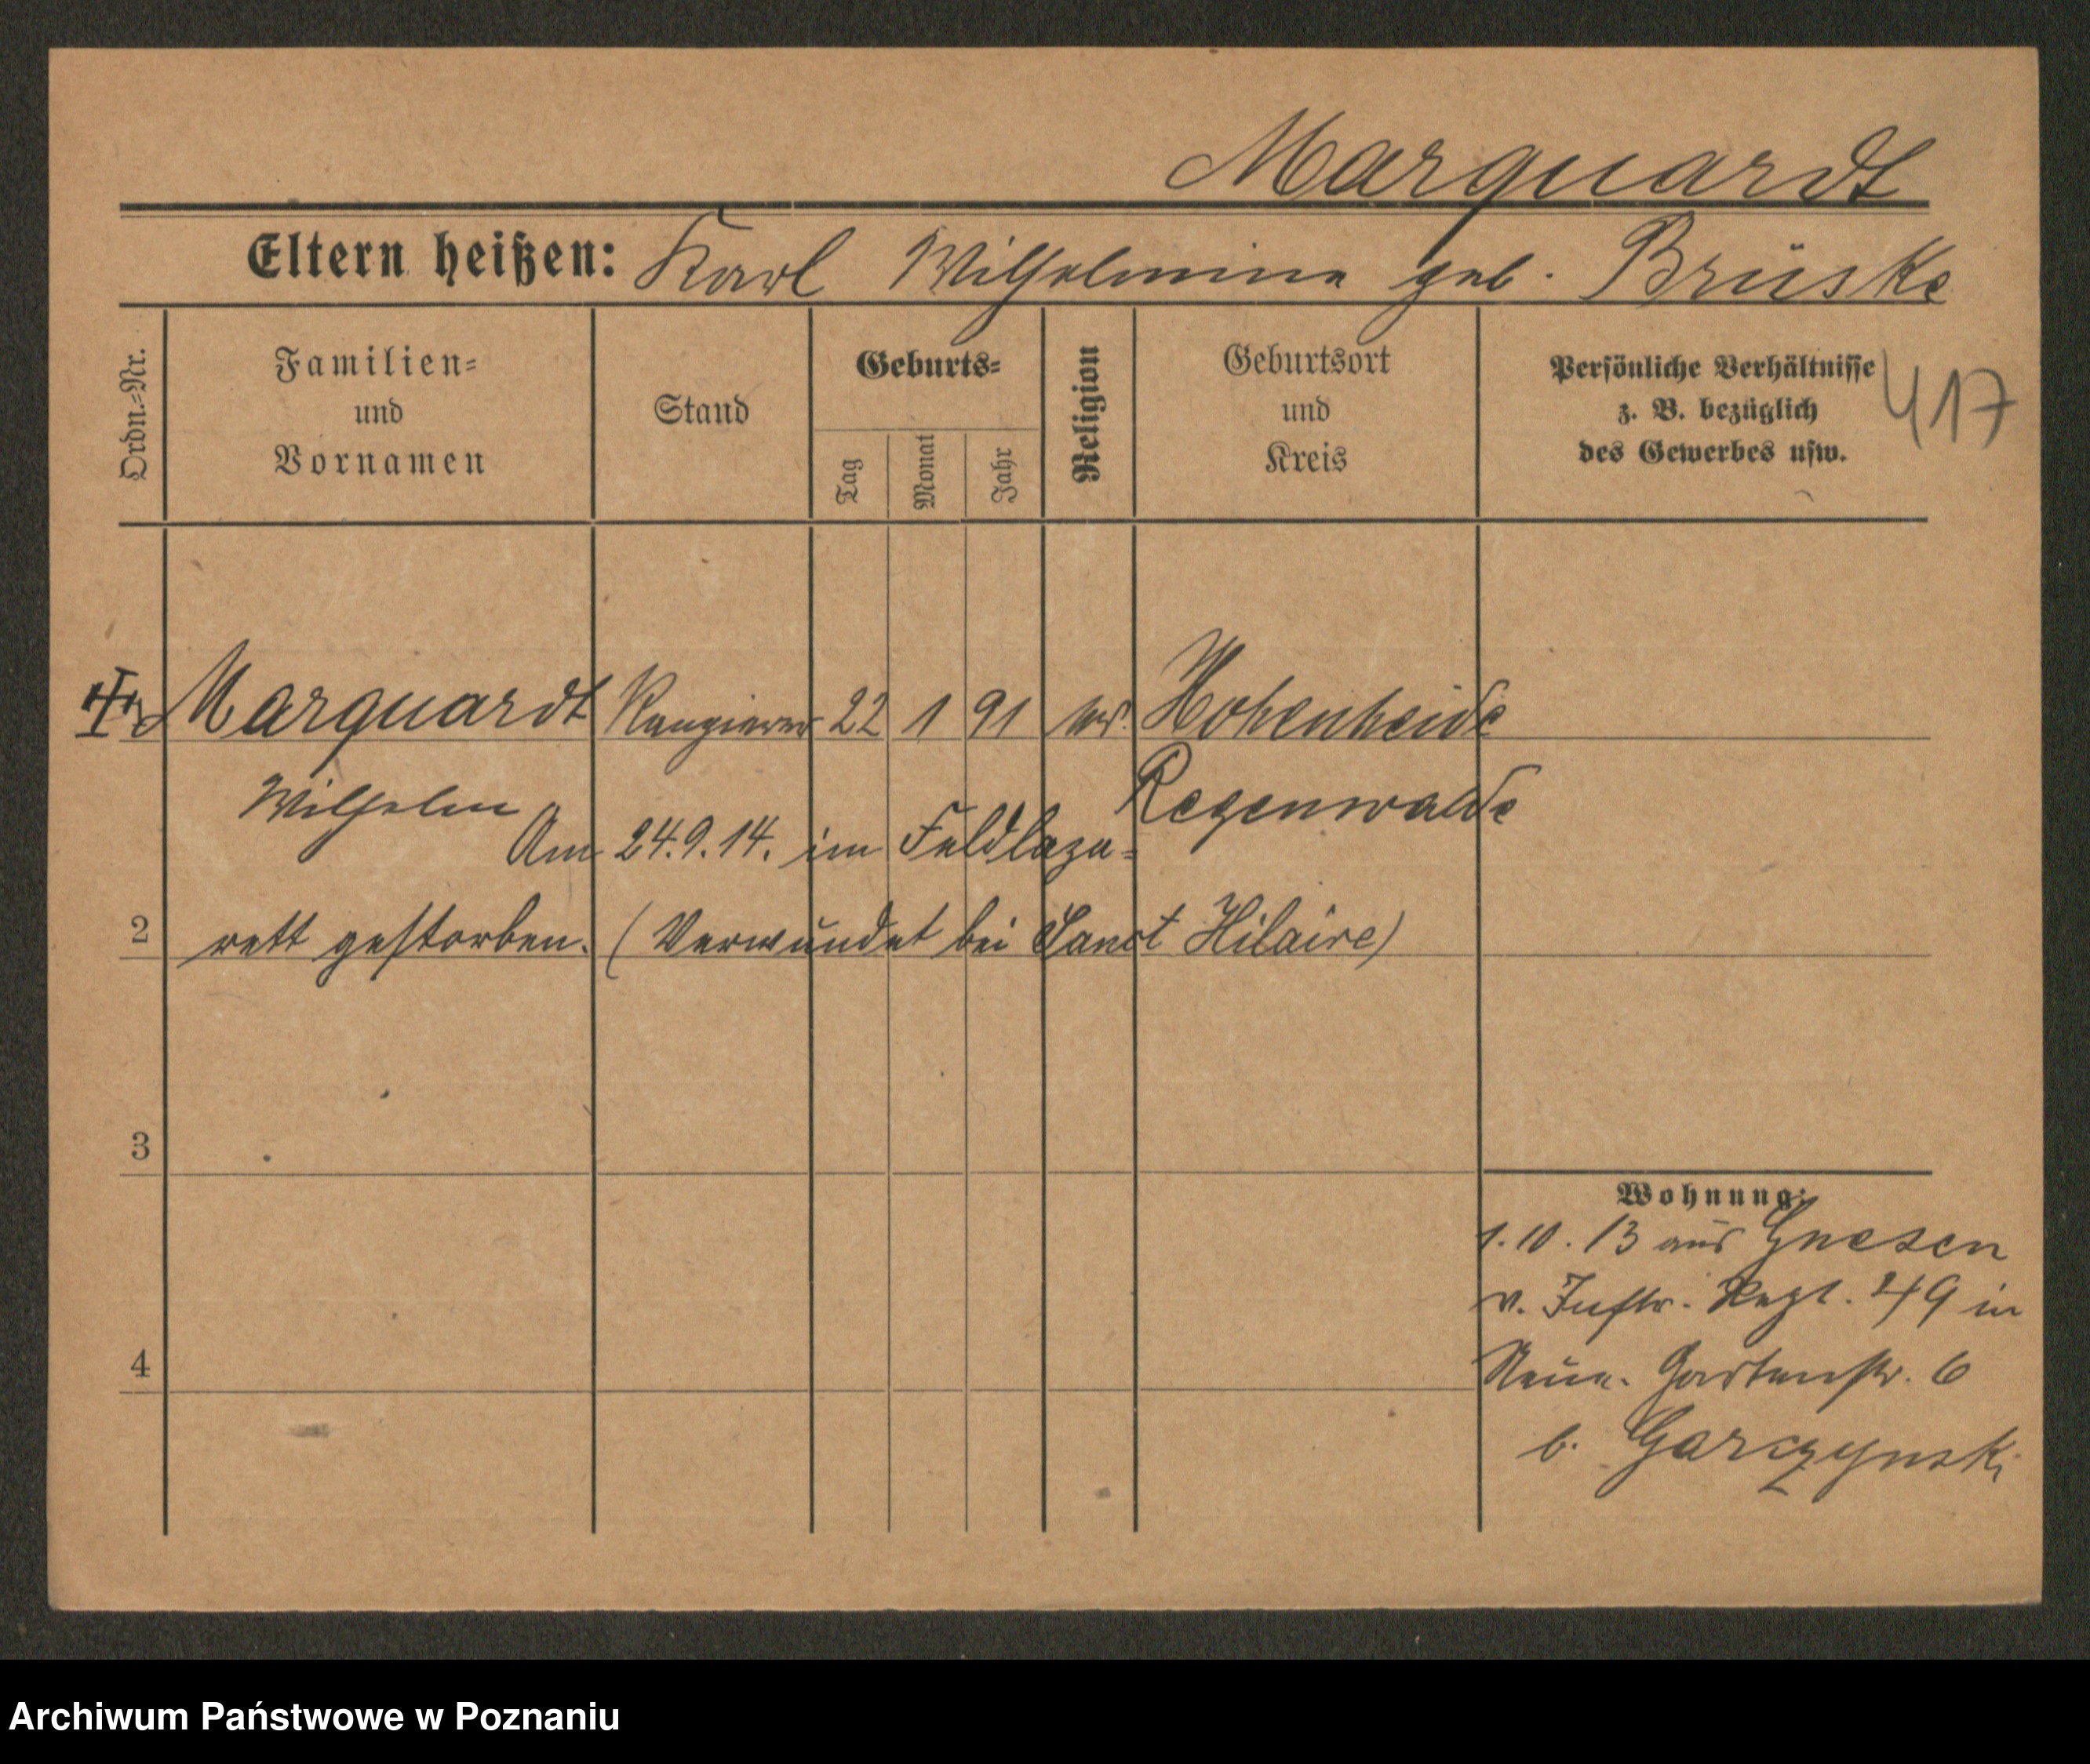 Marquardt
Eltern heißen: Karl Wilhelmine geb. Brüske
Ordn.-Nr.
Familien-
und
Vornamen
Stand
Geburts-
Tag
Monat
Jahr
Religion
Geburtsort
und
Kreis
Persönliche Verhältnisse
z. B. bezüglich
des Gewerbes usw.
417
Marquardt Rangierer 22 1 91 Hohenheide
Wilhelm Regenwalde
Am 24.9.14. im Feldlaza-
2 rett gestorben. (Verwundet bei Sanct Hilaire)
3
Wohnung:
1.10.13 aus Gnesen
v. Inftr. Regt. 49 in
4
Neue. Gartenstr. 6
b. Garczynski
Archiwum Państwowe w Poznaniu